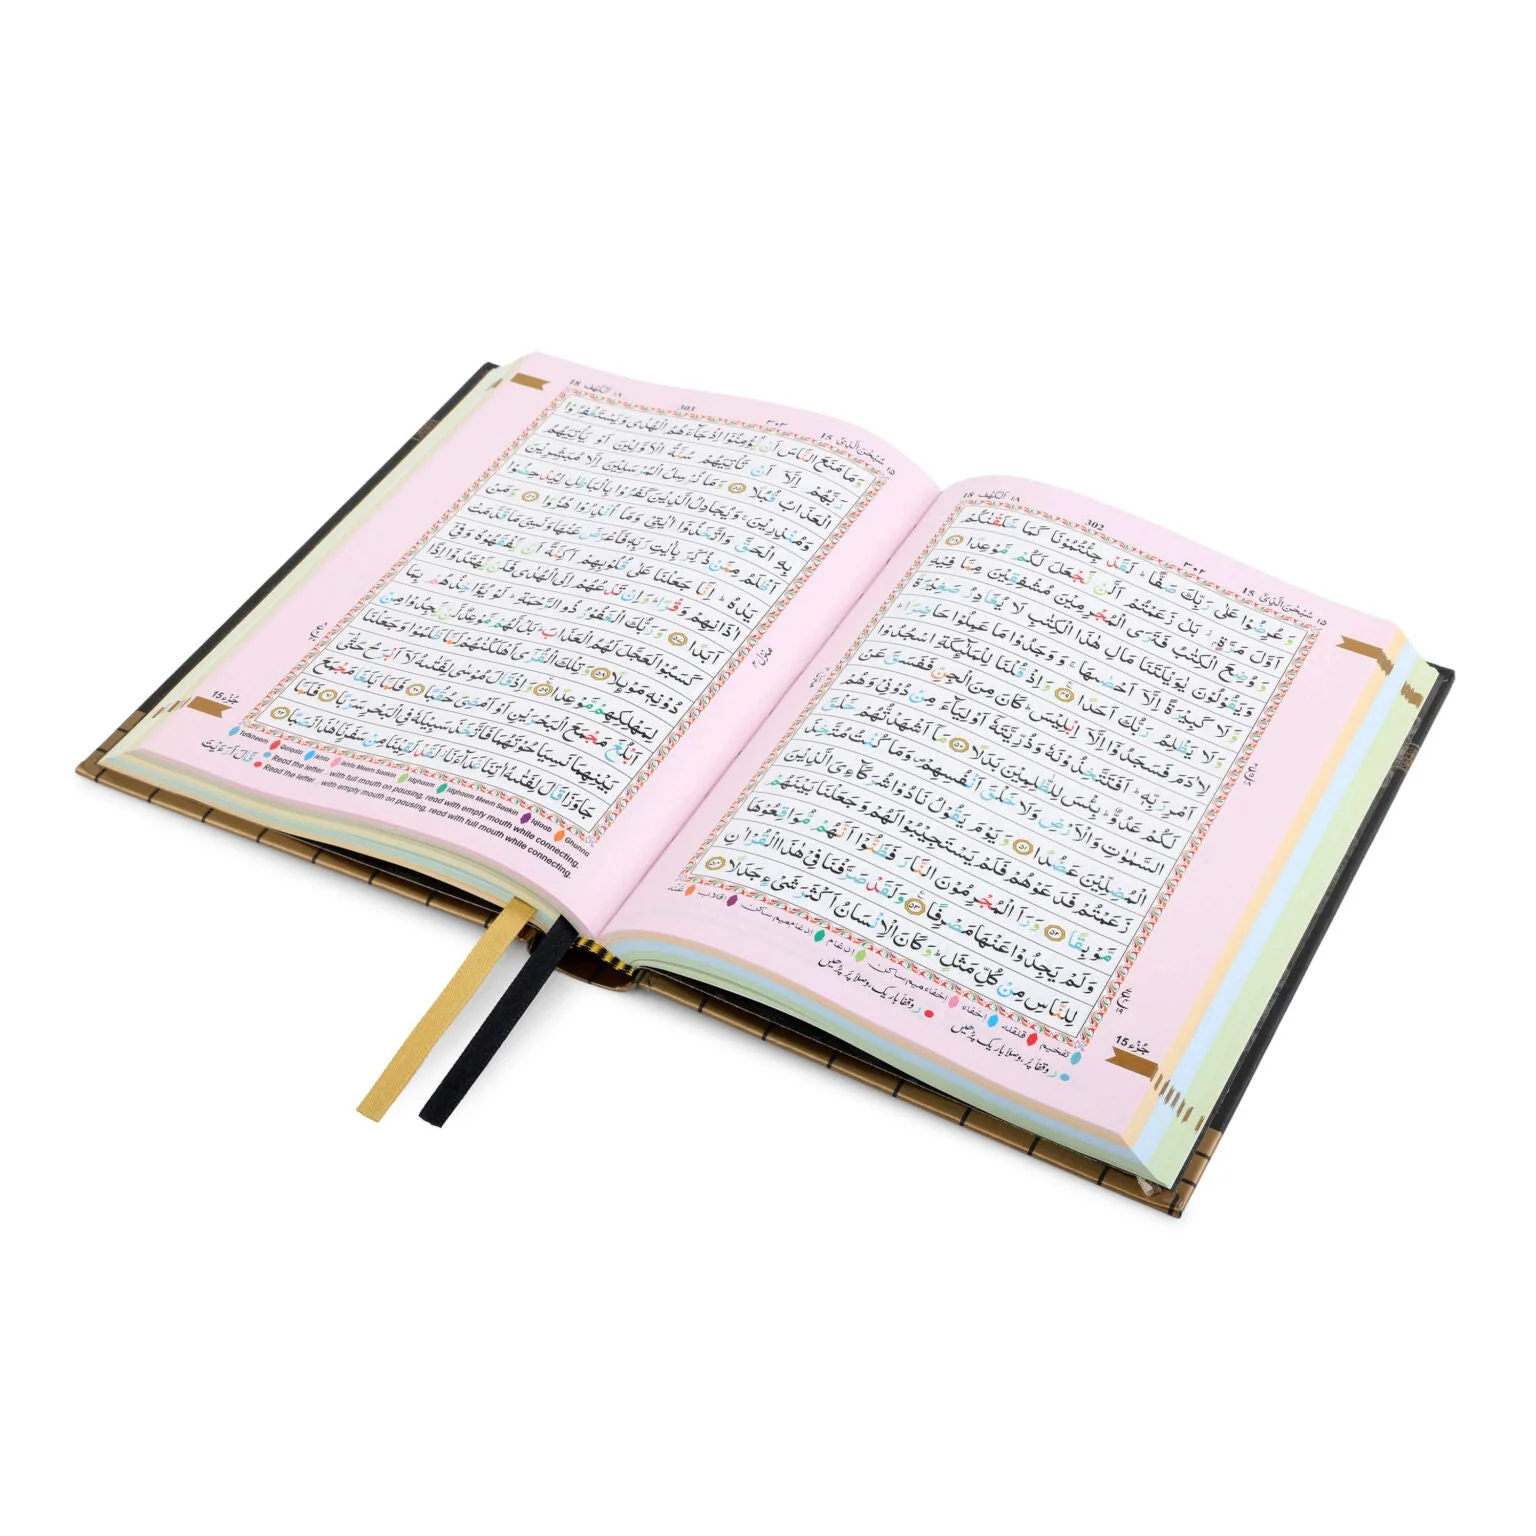 سُبْحٰنَ الَّذِيْٓ ١٥ 15
٣٠٢
302
اَلْكَهْف ١٨ 18
وَعُرِضُوْا عَلٰى رَبِّكَ صَفًّا ؕ لَقَدْ جِئْتُمُوْنَا كَمَا خَلَقْنٰكُمْ
اَوَّلَ مَرَّةٍۭ ز بَلْ زَعَمْتُمْ اَلَّنْ نَّجْعَلَ لَكُمْ مَّوْعِدًا ۴۸
وَوُضِعَ الْكِتٰبُ فَتَرَى الْمُجْرِمِيْنَ مُشْفِقِيْنَ مِمَّا فِيْهِ
وَيَقُوْلُوْنَ يٰوَيْلَتَنَا مَالِ هٰذَا الْكِتٰبِ لَا يُغَادِرُ صَغِيْرَةً
وَّلَا كَبِيْرَةً اِلَّاۤ اَحْصٰىهَا ۚ وَوَجَدُوْا مَا عَمِلُوْا حَاضِرًا ؕ
وَلَا يَظْلِمُ رَبُّكَ اَحَدًا ۴۹ وَاِذْ قُلْنَا لِلْمَلٰٓئِكَةِ اسْجُدُوْا
لِاٰدَمَ فَسَجَدُوْۤا اِلَّاۤ اِبْلِيْسَ ؕ كَانَ مِنَ الْجِنِّ فَفَسَقَ عَنْ
اَمْرِ رَبِّهٖ ؕ اَفَتَتَّخِذُوْنَهٗ وَذُرِّيَّتَهٗۤ اَوْلِيَآءَ مِنْ دُوْنِيْ وَهُمْ
لَكُمْ عَدُوٌّ ؕ بِئْسَ لِلظّٰلِمِيْنَ بَدَلًا ۵۰ مَاۤ اَشْهَدْتُّهُمْ خَلْقَ
السَّمٰوٰتِ وَالْاَرْضِ وَلَا خَلْقَ اَنْفُسِهِمْ وَمَا كُنْتُ مُتَّخِذَ
الْمُضِلِّيْنَ عَضُدًا ۵۱ وَيَوْمَ يَقُوْلُ نَادُوْا شُرَكَآءِيَ الَّذِيْنَ
زَعَمْتُمْ فَدَعَوْهُمْ فَلَمْ يَسْتَجِيْبُوْا لَهُمْ وَجَعَلْنَا بَيْنَهُمْ
مَّوْبِقًا ۵۲ وَرَاَ الْمُجْرِمُوْنَ النَّارَ فَظَنُّوْۤا اَنَّهُمْ مُّوَاقِعُوْهَا
وَلَمْ يَجِدُوْا عَنْهَا مَصْرِفًا ۵۳ وَلَقَدْ صَرَّفْنَا فِيْ هٰذَا الْقُرْاٰنِ
لِلنَّاسِ مِنْ كُلِّ مَثَلٍ ؕ وَكَانَ الْاِنْسَانُ اَكْثَرَ شَيْءٍ جَدَلًا ۵۴
جُزْء 15
تفخیم قلقلہ اخفاء اخفاء میم ساکن ادغام ادغام میم ساکن اقلاب غنہ
ر وقفاً باریک، وصلاً پُر پڑھیں
ر وقفاً پُر، وصلاً باریک پڑھیں
سُبْحٰنَ الَّذِيْٓ ١٥ 15
٣٠٣
303
اَلْكَهْف ١٨ 18
وَمَا مَنَعَ النَّاسَ اَنْ يُّؤْمِنُوْۤا اِذْ جَآءَهُمُ الْهُدٰى وَيَسْتَغْفِرُوْا
رَبَّهُمْ اِلَّاۤ اَنْ تَاْتِيَهُمْ سُنَّةُ الْاَوَّلِيْنَ اَوْ يَاْتِيَهُمُ
الْعَذَابُ قُبُلًا ۵۵ وَمَا نُرْسِلُ الْمُرْسَلِيْنَ اِلَّا مُبَشِّرِيْنَ
وَمُنْذِرِيْنَ ۚ وَيُجَادِلُ الَّذِيْنَ كَفَرُوْا بِالْبَاطِلِ لِيُدْحِضُوْا
بِهِ الْحَقَّ وَاتَّخَذُوْۤا اٰيٰتِيْ وَمَاۤ اُنْذِرُوْا هُزُوًا ۵۶ وَمَنْ
اَظْلَمُ مِمَّنْ ذُكِّرَ بِاٰيٰتِ رَبِّهٖ فَاَعْرَضَ عَنْهَا وَنَسِيَ مَا قَدَّمَتْ
يَدٰهُ ؕ اِنَّا جَعَلْنَا عَلٰى قُلُوْبِهِمْ اَكِنَّةً اَنْ يَّفْقَهُوْهُ وَفِيْۤ
اٰذَانِهِمْ وَقْرًا ؕ وَاِنْ تَدْعُهُمْ اِلَى الْهُدٰى فَلَنْ يَّهْتَدُوْۤا اِذًا
اَبَدًا ۵۷ وَرَبُّكَ الْغَفُوْرُ ذُو الرَّحْمَةِ ؕ لَوْ يُؤَاخِذُهُمْ بِمَا
كَسَبُوْا لَعَجَّلَ لَهُمُ الْعَذَابَ ؕ بَلْ لَّهُمْ مَّوْعِدٌ لَّنْ يَّجِدُوْا مِنْ
دُوْنِهٖ مَوْئِلًا ۵۸ وَتِلْكَ الْقُرٰۤى اَهْلَكْنٰهُمْ لَمَّا ظَلَمُوْا وَجَعَلْنَا
لِمَهْلِكِهِمْ مَّوْعِدًا ۵۹ وَاِذْ قَالَ مُوْسٰى لِفَتٰىهُ لَاۤ اَبْرَحُ حَتّٰۤى
اَبْلُغَ مَجْمَعَ الْبَحْرَيْنِ اَوْ اَمْضِيَ حُقُبًا ۶۰ فَلَمَّا بَلَغَا مَجْمَعَ
بَيْنِهِمَا نَسِيَا حُوْتَهُمَا فَاتَّخَذَ سَبِيْلَهٗ فِي الْبَحْرِ سَرَبًا ۶۱ فَلَمَّا
جَاوَزَا قَالَ لِفَتٰىهُ اٰتِنَا غَدَآءَنَا لَقَدْ لَقِيْنَا مِنْ سَفَرِنَا هٰذَا نَصَبًا ۶۲
جُزْء 15
Tafkheem Qalqala Ikhfa Ikhfa Meem Saakin Idghaam Idghaam Meem Saakin Iqlaab Ghunna
Read the letter ر with full mouth on pausing, read with empty mouth while connecting.
Read the letter ر with empty mouth on pausing, read with full mouth while connecting.